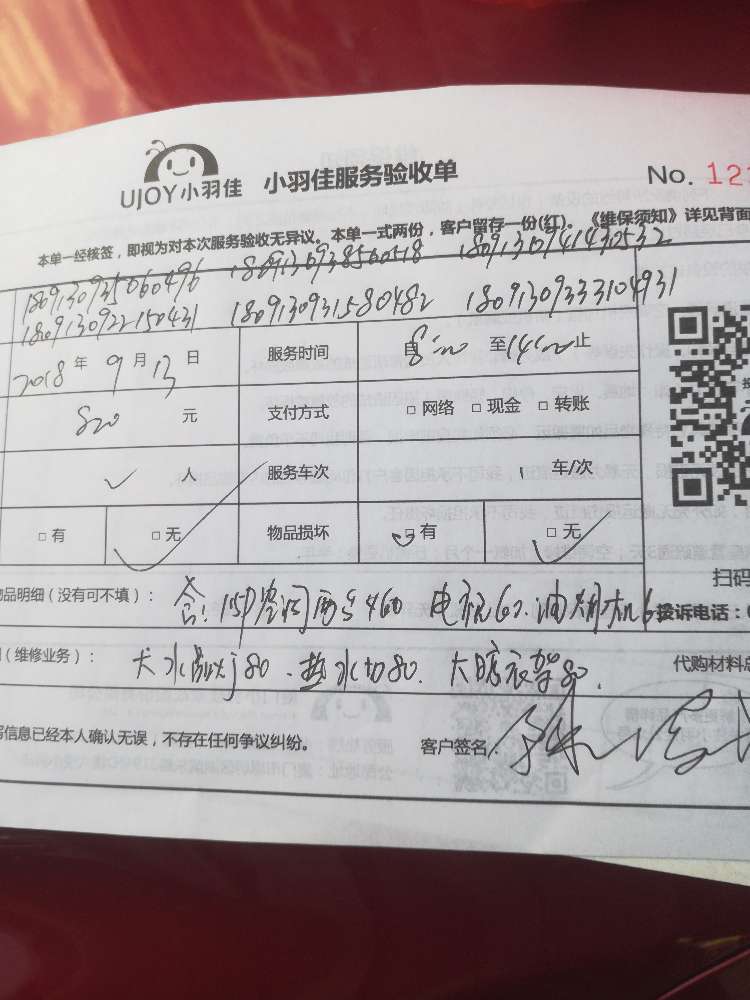 UJOY小羽佳 小羽佳服务验收单 No. 12
本单一经核签，即视为对本次服务验收无异议。本单一式两份，客户留存一份(红)。《维保须知》详见背面
1809130935060496 1809130938560518 1809130741430532
1809130922150431 1809130931580482 18091309333104931
2018 年 9 月 13 日 服务时间 自 8:00 至 14:00 止
820 元 支付方式 □ 网络 □ 现金 □ 转账
人 服务车次 1 车/次
□ 有 □ 无 物品损坏 □ 有 □ 无
品明细（没有可不填）： 460 电视60. 油烟机6
扫码
投诉电话：
（维修业务）： 80. 热水 80. 大晾衣架80.
代购材料总
信息已经本人确认无误，不存在任何争议纠纷。 客户签名：